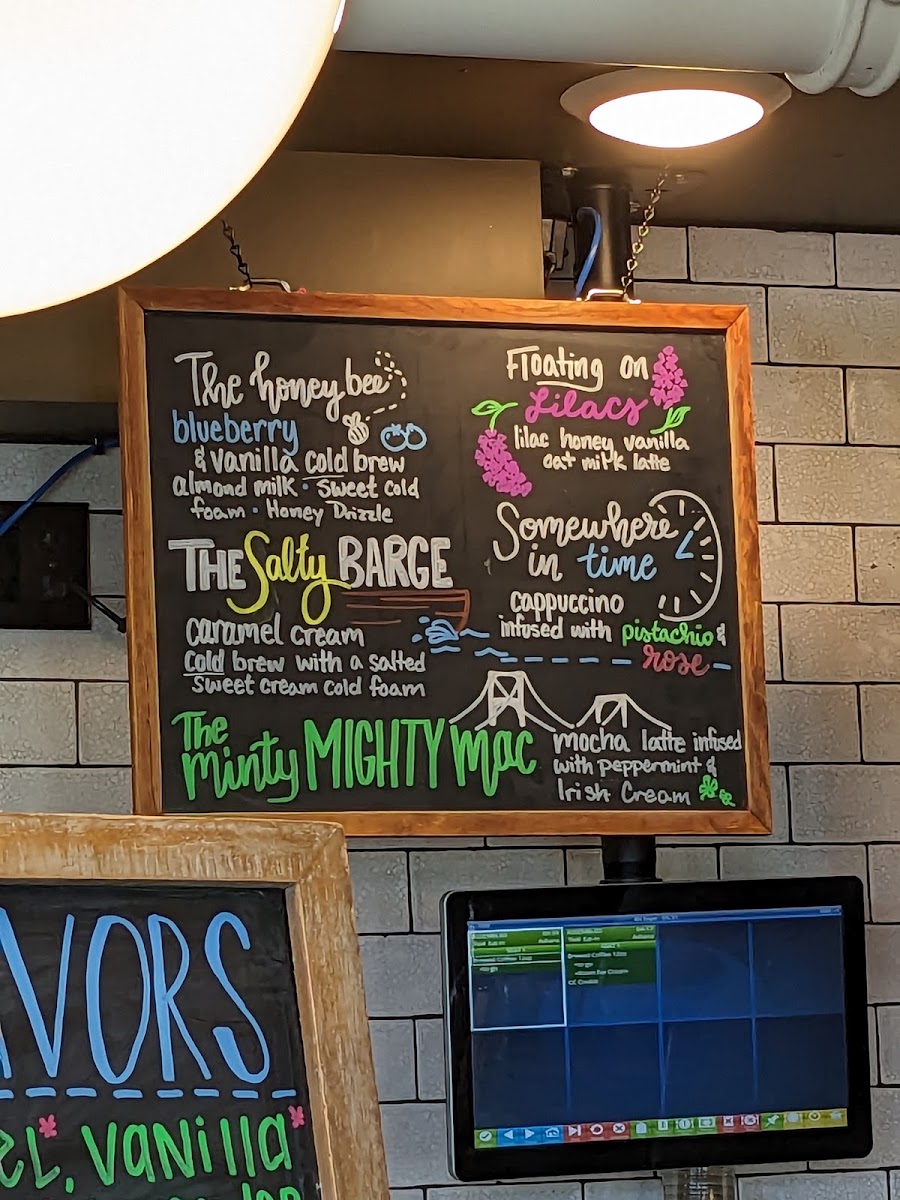 The honey bee
blueberry
& vanilla cold brew
almond milk • sweet cold
foam • Honey Drizzle
THE Salty BARGE
caramel cream
cold brew with a salted
sweet cream cold foam
Floating on
Lilacs
lilac honey vanilla
oat milk latte
Somewhere
in time
cappuccino
infused with pistachio &
rose
The
Minty MIGHTY Mac
mocha latte infused
with peppermint &
Irish Cream
VORS
vanilla